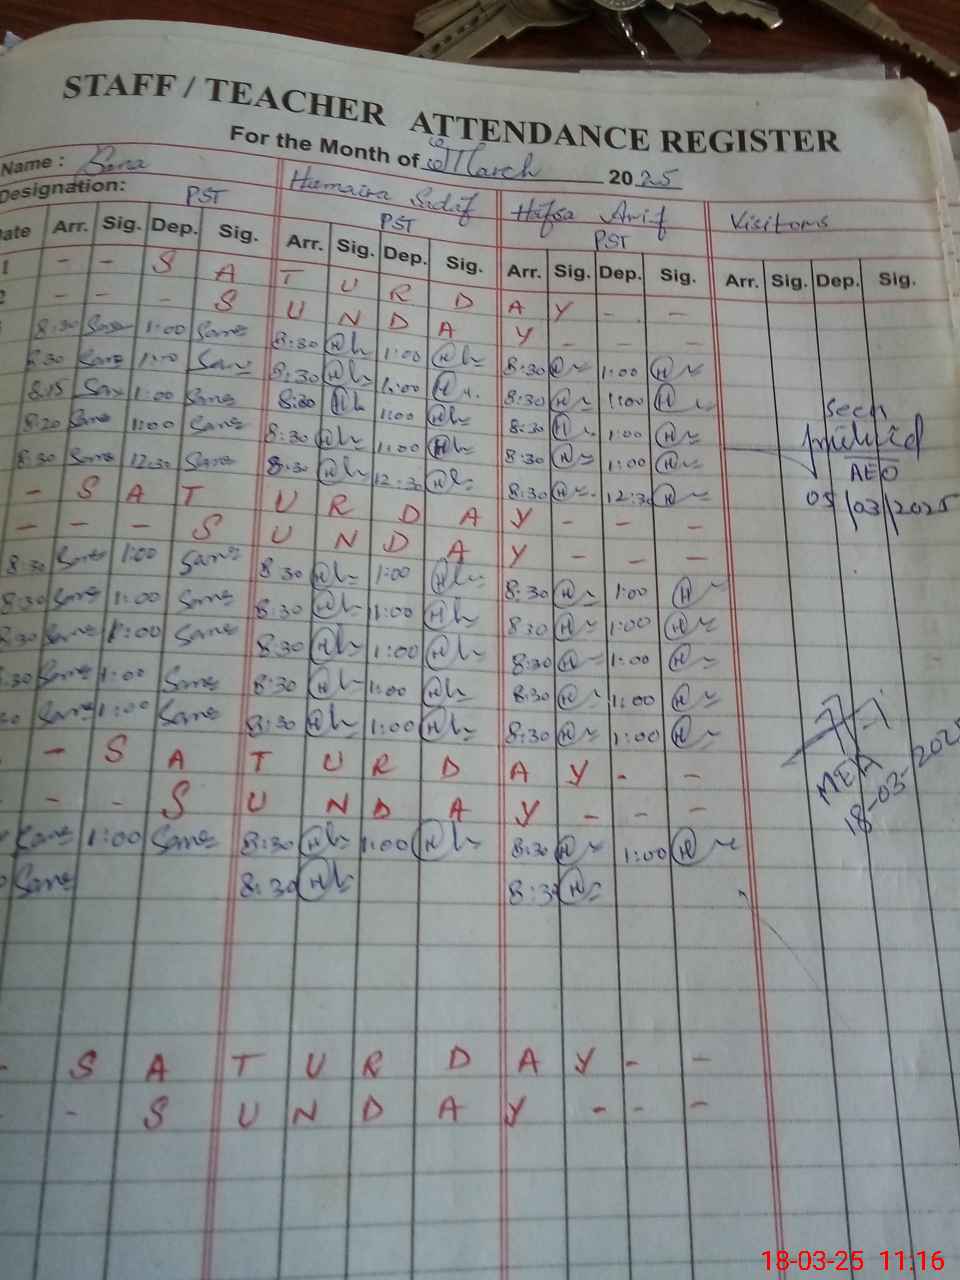 STAFF / TEACHER ATTENDANCE REGISTER
For the Month of March 2025
Name : Sana Humaira Sadaf Hafsa Arif Visitors
Designation: PST PST PST
ate Arr. Sig. Dep. Sig. Arr. Sig. Dep. Sig. Arr. Sig. Dep. Sig. Arr. Sig. Dep. Sig.
1 - - S A T U R D A Y - -
2 - - - S U N D A Y - - -
8:30 Sana 1:00 Sana 8:30 H 1:00 H 8:30 H 1:00 H
8:30 Sana 1:00 Sana 8:30 H 1:00 H 8:30 H 1:00 H
8:15 Sana 1:00 Sana 8:30 H 1:00 H 8:30 H 1:00 H Seen
8:20 Sana 1:00 Sana 8:30 H 1:00 H 8:30 H 1:00 H
8:30 Sana 12:30 Sana 8:30 H 12:30 H 8:30 H 12:30 H AEO
- S A T U R D A Y - - - 05/03/2025
- - - S U N D A Y - - -
8:30 Sana 1:00 Sana 8:30 H 1:00 H 8:30 H 1:00 H
8:30 Sana 1:00 Sana 8:30 H 1:00 H 8:30 H 1:00 H
8:30 Sana 1:00 Sana 8:30 H 1:00 H 8:30 H 1:00 H
:30 Sana 1:00 Sana 8:30 H 1:00 H 8:30 H 1:00 H
30 Sana 1:00 Sana 8:30 H 1:00 H 8:30 H 1:00 H
- S A T U R D A Y - -
- - S U N D A Y - - - MEA
18-03-202
Sana 1:00 Sana 8:30 H 1:00 H 8:30 H 1:00 H
Sana 8:30 H 8:30 H
- S A T U R D A Y - -
- - S U N D A Y - - -
18-03-25 11:16